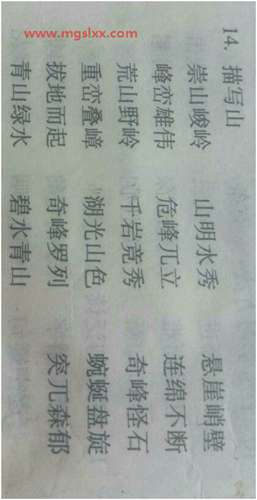 www.mgslxx.com
14. 描写山
崇山峻岭 山明水秀 悬崖峭壁
峰峦雄伟 危峰兀立 连绵不断
荒山野岭 千岩竞秀 奇峰怪石
重峦叠嶂 湖光山色 蜿蜒盘旋
拔地而起 奇峰罗列 突兀森郁
青山绿水 碧水青山